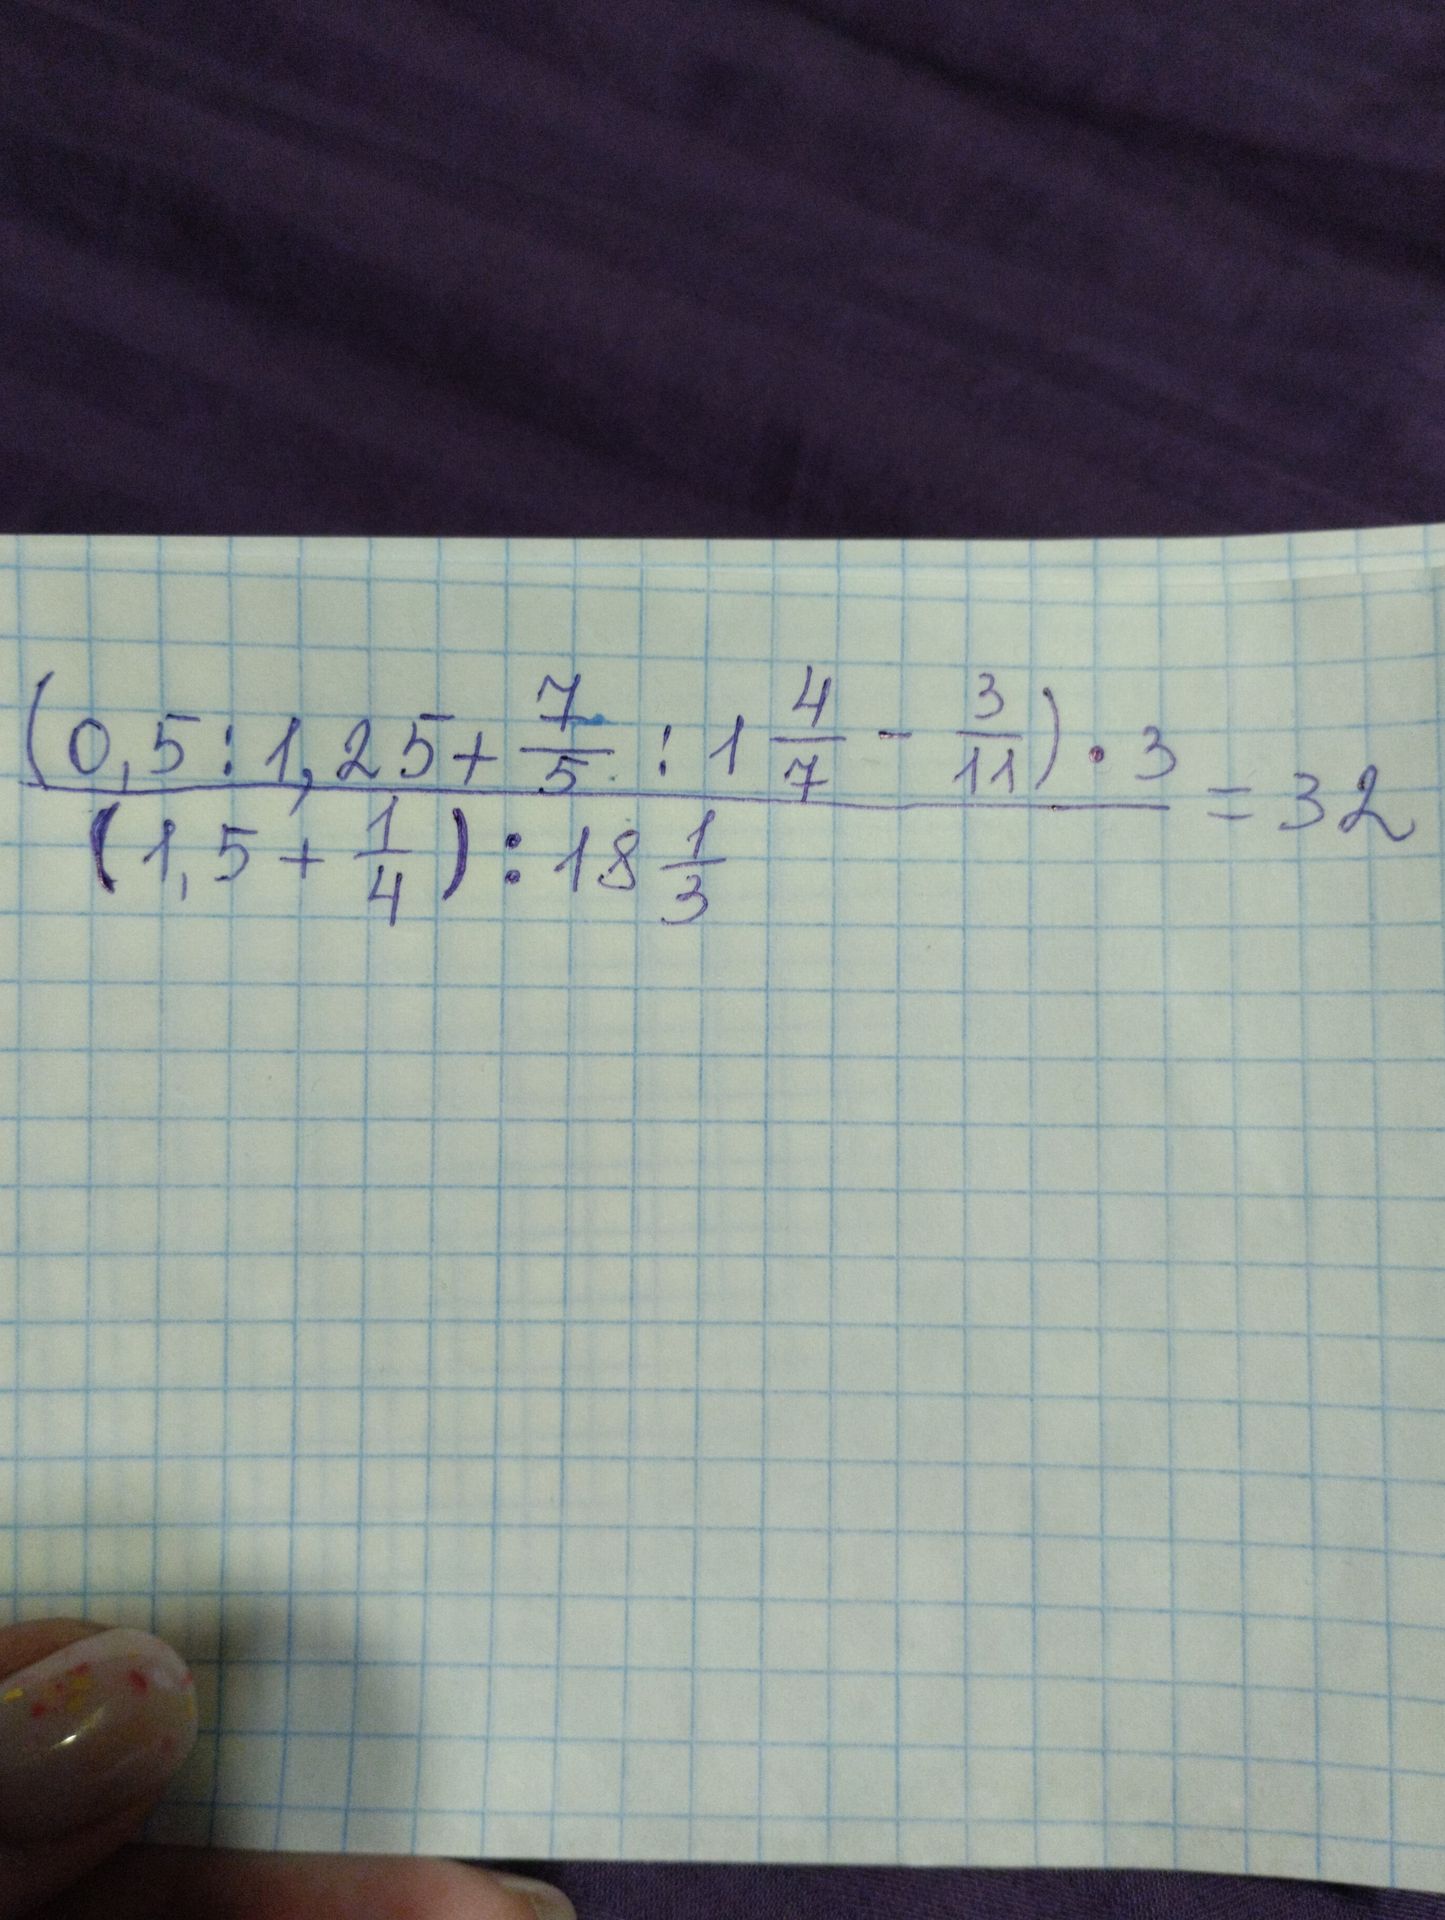 (0,5:1,25+7/5:1 4/7-3/11)·3 = 32
(1,5+1/4):18 1/3